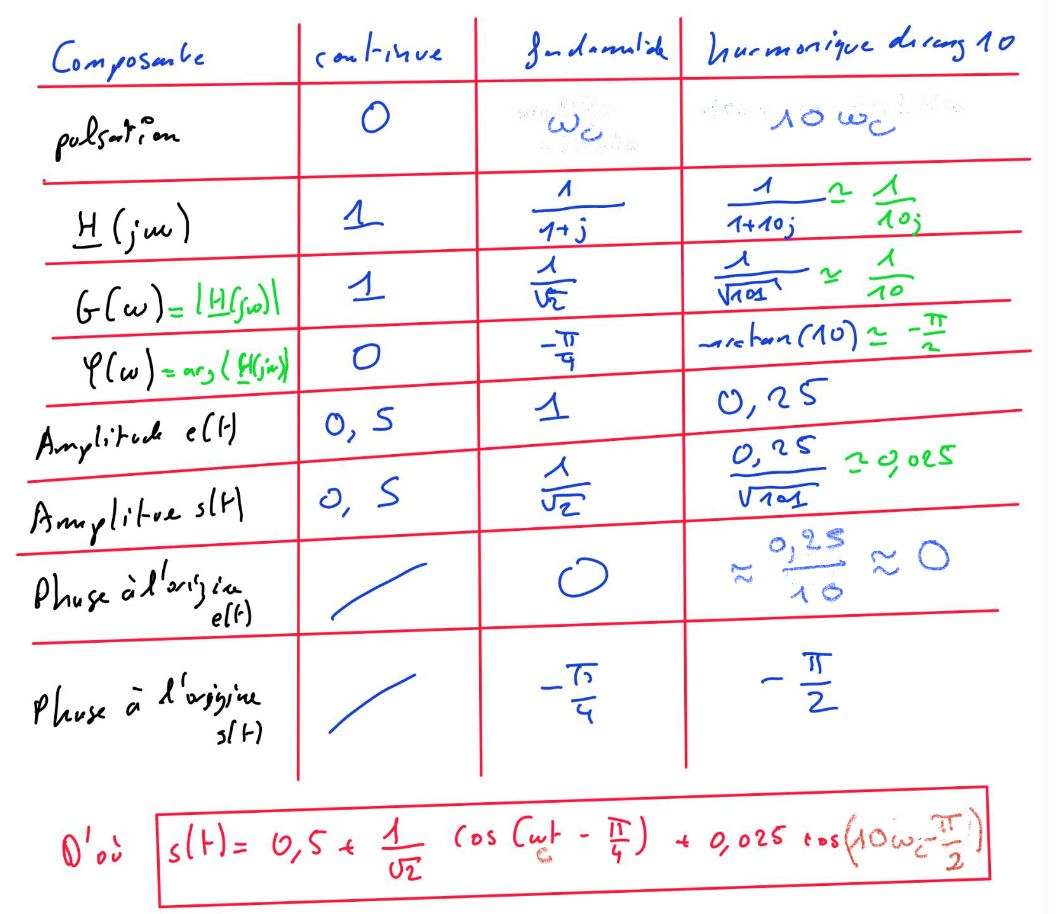 Composante continue fondamentale harmonique de rang 10
pulsation 0 ω_c 10 ω_c
H(jω) 1 1/(1+j) 1/(1+10j) ≃ 1/(10j)
G(ω) = |H(jω)| 1 1/√2 1/√101 ≃ 1/10
φ(ω) = arg(H(jω)) 0 -π/4 -arctan(10) ≃ -π/2
Amplitude e(t) 0,5 1 0,25
Amplitue s(t) 0,5 1/√2 0,25/√101 ≃ 0,025
Phase à l'origine e(t) / 0 ≈ 0,25/10 ≈ 0
Phase à l'origine s(t) / -π/4 -π/2
D'où s(t) = 0,5 + 1/√2 cos(ω_c t - π/4) + 0,025 cos(10ω_c - π/2)